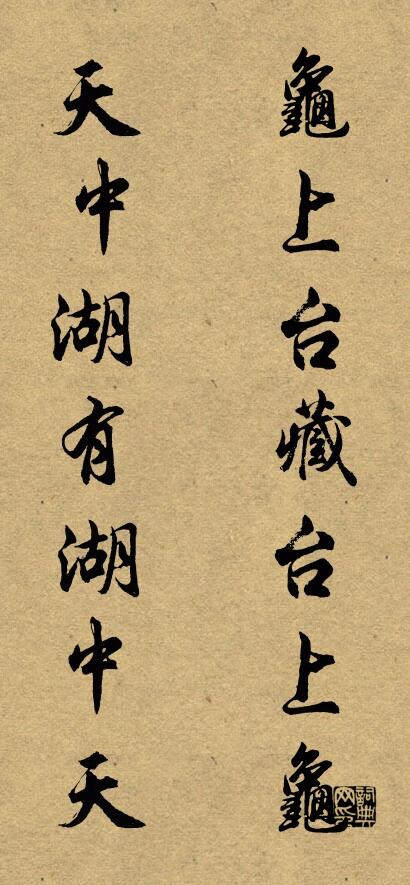 龜上台藏台上龜
天中湖有湖中天